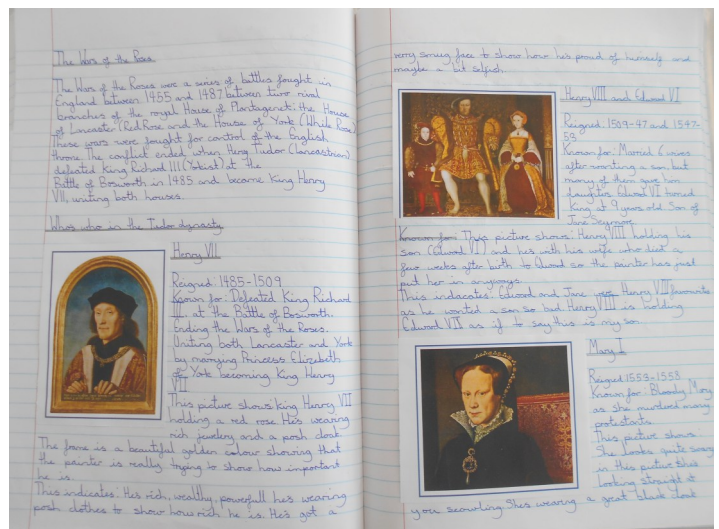 The Wars of the Roses
The Wars of the Roses were a series of battles fought in
England between 1455 and 1487 between two rival
branches of the royal House of Plantagenet: the House
of Lancaster (Red Rose and the House of York (White Rose)
These wars were fought for control of the English
throne. The conflict ended when Henry Tudor (Lancastrian)
defeated King Richard III (Yorkist) at the
Battle of Bosworth in 1485 and became King Henry
VII, uniting both houses.
Who's who in the Tudor dynasty
Henry VII
Reigned: 1485-1509
Known for: Defeated King Richard
III. at the Battle of Bosworth
Ending the Wars of the Roses.
Uniting both Lancaster and York
by marrying Princess Elizabeth
of York becoming King Henry
VII
This picture shows: king Henry VII
holding a red rose He's wearing
rich jewlery and a posh cloak
The frame is a beautiful golden colour showing that
the painter is really trying to show how important
he is.
This indicates: He's rich, wealthy, powerfull he's wearing
posh clothes to show how rich he is. He's got a
very smug face to show how he's proud of himself and
maybe a bit selfish.
Henry VIII and Edward VI
Reigned: 1509-47 and 1547-
53
Known for: Married 6 wives
after wanting a son but
many of them gave him
daughters Edward VI turned
King at 9 years old Son of
Jane Seymore
Known for: This picture shows: Henry VIII holding his
son (Edward VI) and he's with his wife who died a
few weeks after birth to Edward so the painter has just
put her in anyways
This indacates: Edward and Jane were Henry VIII favourite
as he wanted a son so bad Henry VIII is holding
Edward VII as if to say this is my son
Mary I
Reigned 1553-1558
Known for: Bloody Mary
as she murdered many
protestants
This picture shows:
She looks quite scary
in this picture she's
looking straight at
you scowling. She's wearing a great black cloak